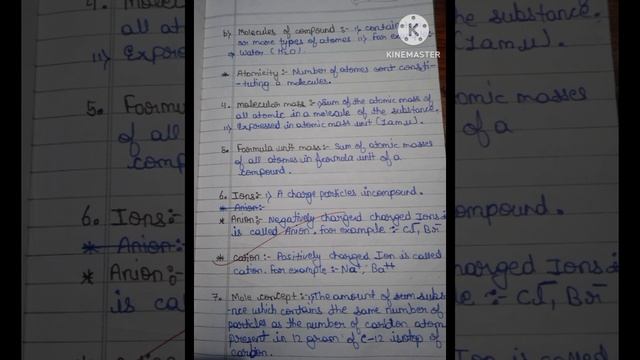 b) Molecules of compound :- i) contain
or more types of atomes ii) For ex
Water (H₂O).
KINEMASTER
* Atomicity :- Number of atomes consti-
-tuting a molecules.
4. molecular mass :- i) Sum of the atomic mass of
all atomic in a molecule of the substance.
ii) Expressed in atomic mass unit (1amu).
5. Formula unit mass :- Sum of atomic masses
of all atomes in formula unit of a
compound.
6. Ions :- i) A charge particles in compound.
* Anion :-
* Anion :- Negatively charged charged Ions
is called Anion. For example :- Cl⁻, Br⁻
* Cation :- Positively charged Ion is called
cation. For example :- Na⁺, Ba⁺⁺
7. Mole concept :- i) The amount of subs
-nce which contains the same number of
particles as the number of carbon atom
present in 12 gram of C-12 isotop of
carbon.